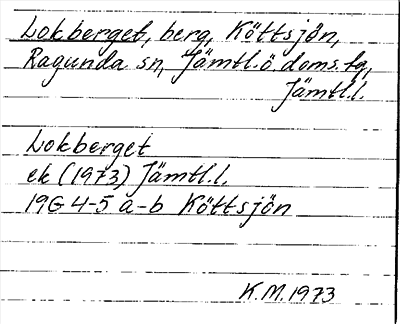 Lokberget, berg, Köttsjön,
Ragunda sn, Jämtl. ö. doms. tg,
Jämtl.l.
Lokberget
ek (1973) Jämtl.l.
19G 4-5 a-b Köttsjön
K.M. 1973